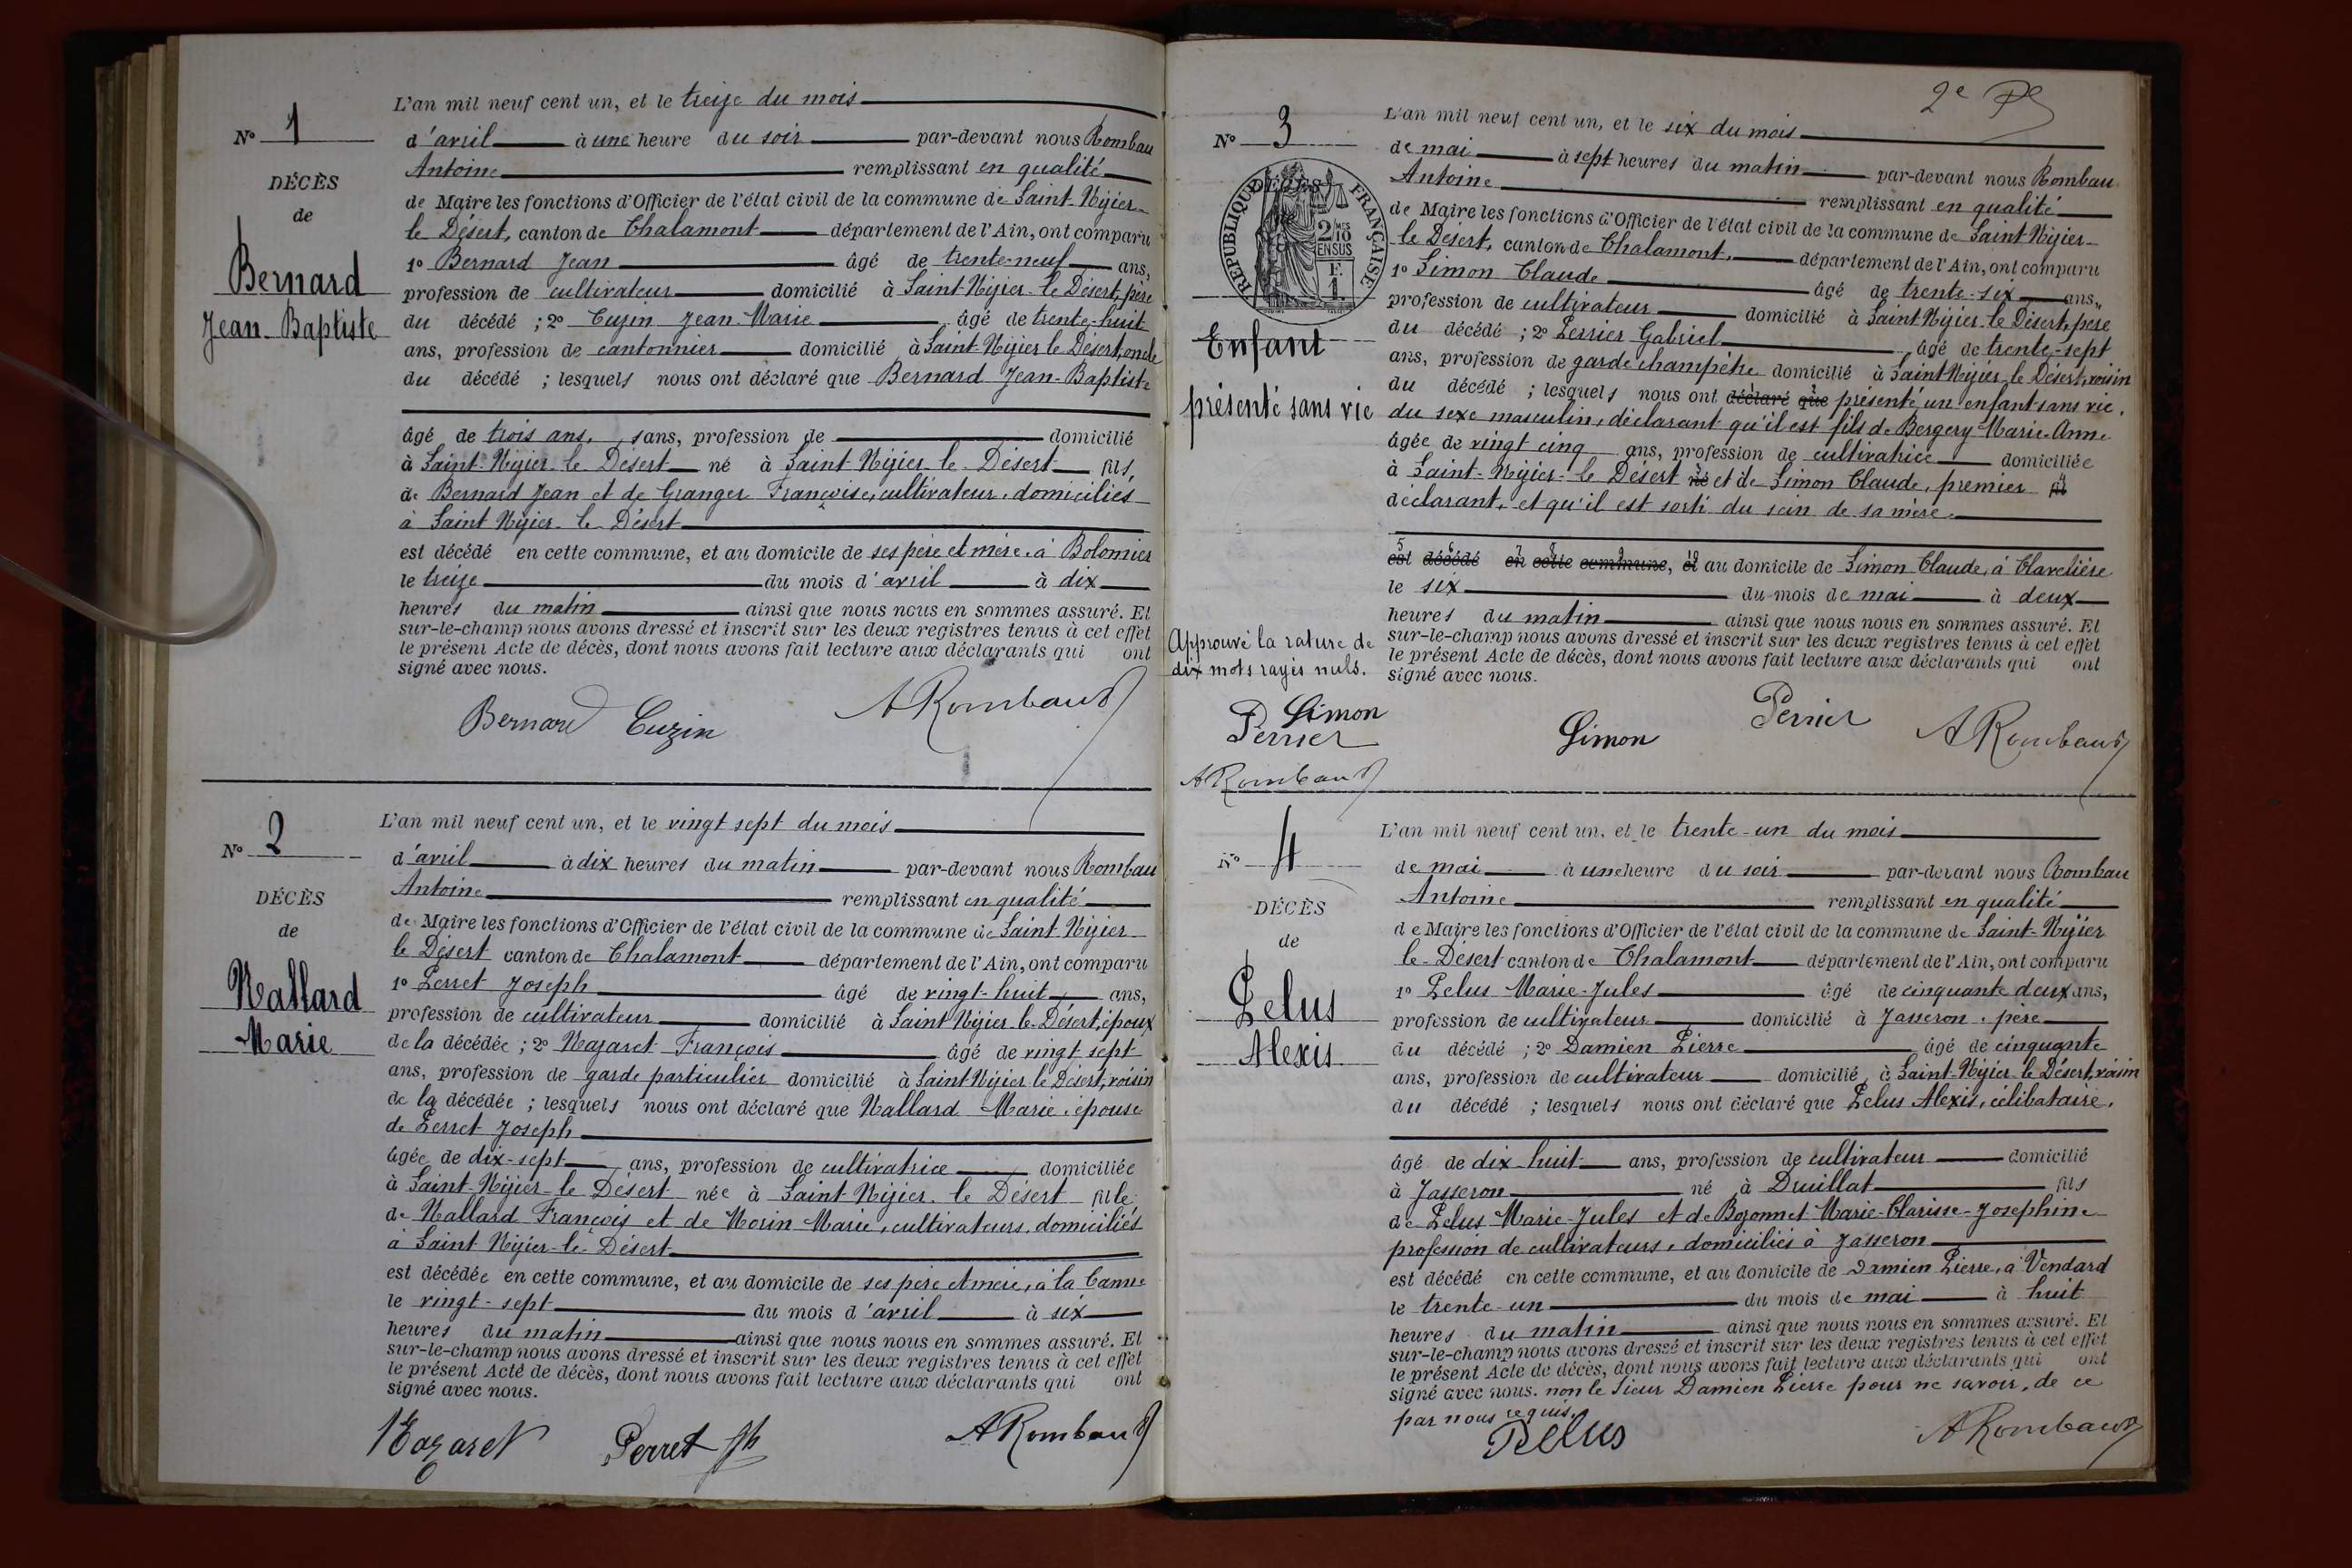 N° 1
DÉCÈS
de
Bernard
Jean-Baptiste
L'an mil neuf cent un, et le treize du mois
d'avril à une heure du soir par-devant nous Rombau
Antoine remplissant en qualité
de Maire les fonctions d'Officier de l'état civil de la commune de Saint-Nizier-
le Désert, canton de Chalamont département de l'Ain, ont comparu
1° Bernard Jean âgé de trente-neuf ans,
profession de cultivateur domicilié à Saint-Nizier-le Désert, père
du décédé ; 2° Cuzin Jean-Marie âgé de trente-huit
ans, profession de cantonnier domicilié à Saint-Nizier le Désert, oncle
du décédé ; lesquels nous ont déclaré que Bernard Jean-Baptiste
âgé de trois ans, sans, profession de domicilié
à Saint-Nizier-le Désert né à Saint-Nizier-le-Désert fils,
de Bernard Jean et de Granger Françoise, cultivateur, domiciliés
à Saint Nizier-le-Désert
est décédé en cette commune, et au domicile de ses père et mère, à Bolomier
le treize du mois d'avril à dix
heures du matin ainsi que nous nous en sommes assuré. Et
sur-le-champ nous avons dressé et inscrit sur les deux registres tenus à cet effet
le présent Acte de décès, dont nous avons fait lecture aux déclarants qui ont
signé avec nous.
Bernard Cuzin ARombaud
N° 2
DÉCÈS
de
Mallard
Marie
L'an mil neuf cent un, et le vingt sept du mois
d'avril à dix heures du matin par-devant nous Rombau
Antoine remplissant en qualité
de Maire les fonctions d'Officier de l'état civil de la commune de Saint-Nizier-
le Désert canton de Chalamont département de l'Ain, ont comparu
1° Perret Joseph âgé de vingt-huit ans,
profession de cultivateur domicilié à Saint Nizier-le-Désert, époux
de la décédée ; 2° Nazaret François âgé de vingt sept
ans, profession de garde particulier domicilié à Saint Nizier le Désert, voisin
de la décédée ; lesquels nous ont déclaré que Mallard Marie, épouse
de Perret Joseph
âgée de dix-sept ans, profession de cultivatrice domiciliée
à Saint-Nizier-le Désert née à Saint Nizier-le Désert fille
de Mallard François et de Morin Marie, cultivateurs, domiciliés
à Saint Nizier-le-Désert
est décédée en cette commune, et au domicile de ses père et mère, à la
le vingt-sept du mois d'avril à six
heures du matin ainsi que nous nous en sommes assuré. Et
sur-le-champ nous avons dressé et inscrit sur les deux registres tenus à cet effet
le présent Acte de décès, dont nous avons fait lecture aux déclarants qui ont
signé avec nous.
Nazaret Perret Jh ARombaud
2e
N° 3
DÉCÈS
RÉPUBLIQUE FRANÇAISE
2/10 MES
EN SUS
F.
1.
Enfant
présenté sans vie
L'an mil neuf cent un, et le six du mois
de mai à sept heures du matin par-devant nous Rombau
Antoine remplissant en qualité
de Maire les fonctions d'Officier de l'état civil de la commune de Saint-Nizier-
le Désert, canton de Chalamont, département de l'Ain, ont comparu
1° Simon Claude âgé de trente-six ans,
profession de cultivateur domicilié à Saint Nizier-le Désert, père
du décédé ; 2° Perrier Gabriel âgé de trente-sept
ans, profession de garde champêtre domicilié à Saint Nizier le Désert, voisin
du décédé ; lesquels nous ont déclaré que présenté un enfant sans vie,
du sexe masculin, déclarant qu'il est fils de Bergery Marie-Anne
âgée de vingt cinq ans, profession de cultivatrice domiciliée
à Saint-Nizier-le Désert né et de Simon Claude, premier fils
déclarant, et qu'il est sorti du sein de sa mère.
est décédé en cette commune, et au domicile de Simon Claude, à Clavelière
le six du mois de mai à deux
heures du matin ainsi que nous nous en sommes assuré. Et
sur-le-champ nous avons dressé et inscrit sur les deux registres tenus à cet effet
le présent Acte de décès, dont nous avons fait lecture aux déclarants qui ont
signé avec nous.
Approuvé la rature de
dix mots rayés nuls.
Simon
Perrier
ARombaud
Simon Perrier ARombaud
N° 4
DÉCÈS
de
Pelus
Alexis
L'an mil neuf cent un, et le trente-un du mois
de mai à une heure du soir par-devant nous Rombau
Antoine remplissant en qualité
de Maire les fonctions d'Officier de l'état civil de la commune de Saint-Nizier
le-Désert canton de Chalamont département de l'Ain, ont comparu
1° Pelus Marie-Jules âgé de cinquante deux ans,
profession de cultivateur domicilié à Jasseron, père
du décédé ; 2° Damien Pierre âgé de cinquante
ans, profession de cultivateur domicilié à Saint-Nizier-le Désert, voisin
du décédé ; lesquels nous ont déclaré que Pelus Alexis, célibataire,
âgé de dix-huit ans, profession de cultivateur domicilié
à Jasseron né à Druillat fils
de Pelus Marie-Jules et de Bozonnet Marie-Clarisse-Josephine
profession de cultivateurs, domiciliés à Jasseron
est décédé en cette commune, et au domicile de Damien Pierre, à Vendard
le trente-un du mois de mai à huit
heures du matin ainsi que nous nous en sommes assuré. Et
sur-le-champ nous avons dressé et inscrit sur les deux registres tenus à cet effet
le présent Acte de décès, dont nous avons fait lecture aux déclarants qui ont
signé avec nous. non le Sieur Damien Pierre pour ne savoir, de ce
par nous requis.
Pelus ARombaud